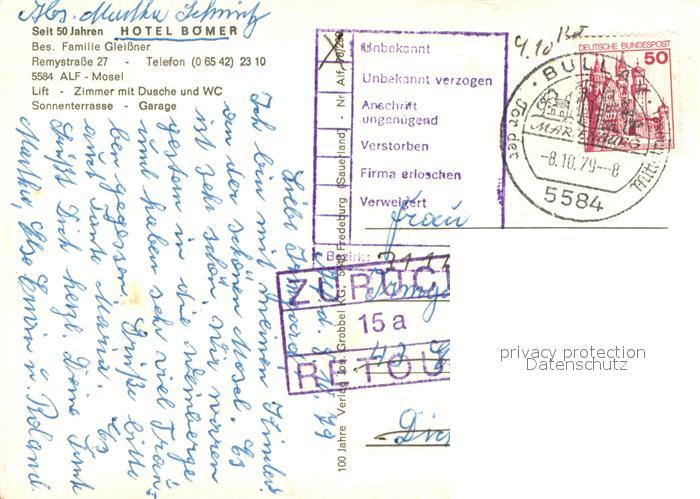 Abs. Martha Schmitz
Seit 50 Jahren HOTEL BÖMER
Bes. Familie Gleißner
Remystraße 27 - Telefon (0 65 42) 23 10
5584 ALF - Mosel
Lift - Zimmer mit Dusche und WC
Sonnenterrasse - Garage
Alf, d. 79
Liebe Irmgard,
Ich bin mit meinen Kindern
an der schönen Mosel. Es
ist sehr schön, wir waren
gestern in die Weinberge
und haben sehr viel Trau-
ben gegessen. Grüße bitte
auch Tante Maria. Es
Grüßt Dich herzl. Deine Tante
Martha, Else Erwin u. Roland
100 Jahre Verlag Jos. Grobbel KG, 5948 Fredeburg (Sauerland) - Nr. Alf
Unbekannt
Unbekannt verzogen
Anschrift
ungenügend
Verstorben
Firma erloschen
Verweigert
Bezirk:
ZURÜC
15 a
RETOU
9.10
DEUTSCHE BUNDESPOST
50
BULLAY
MARIENBURG
-8.10.79--8
5584
vor der
Mittel
Frau
Irmg
43
privacy protection
Datenschutz